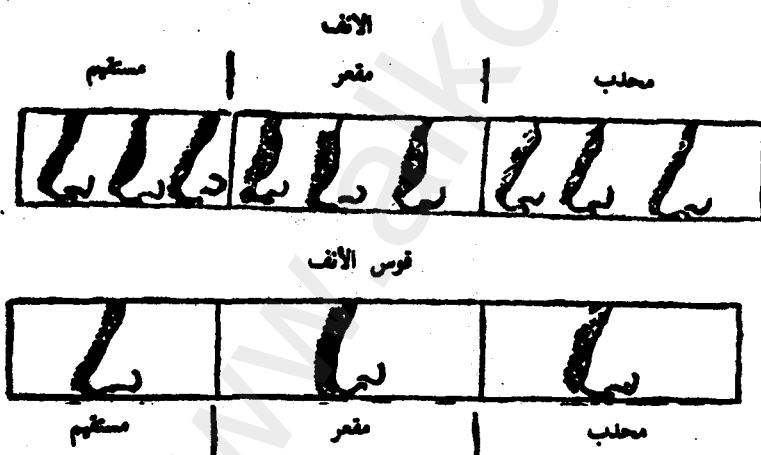 الأنف
محدب مقعر مستقيم
قوس الأنف
محدب مقعر مستقيم